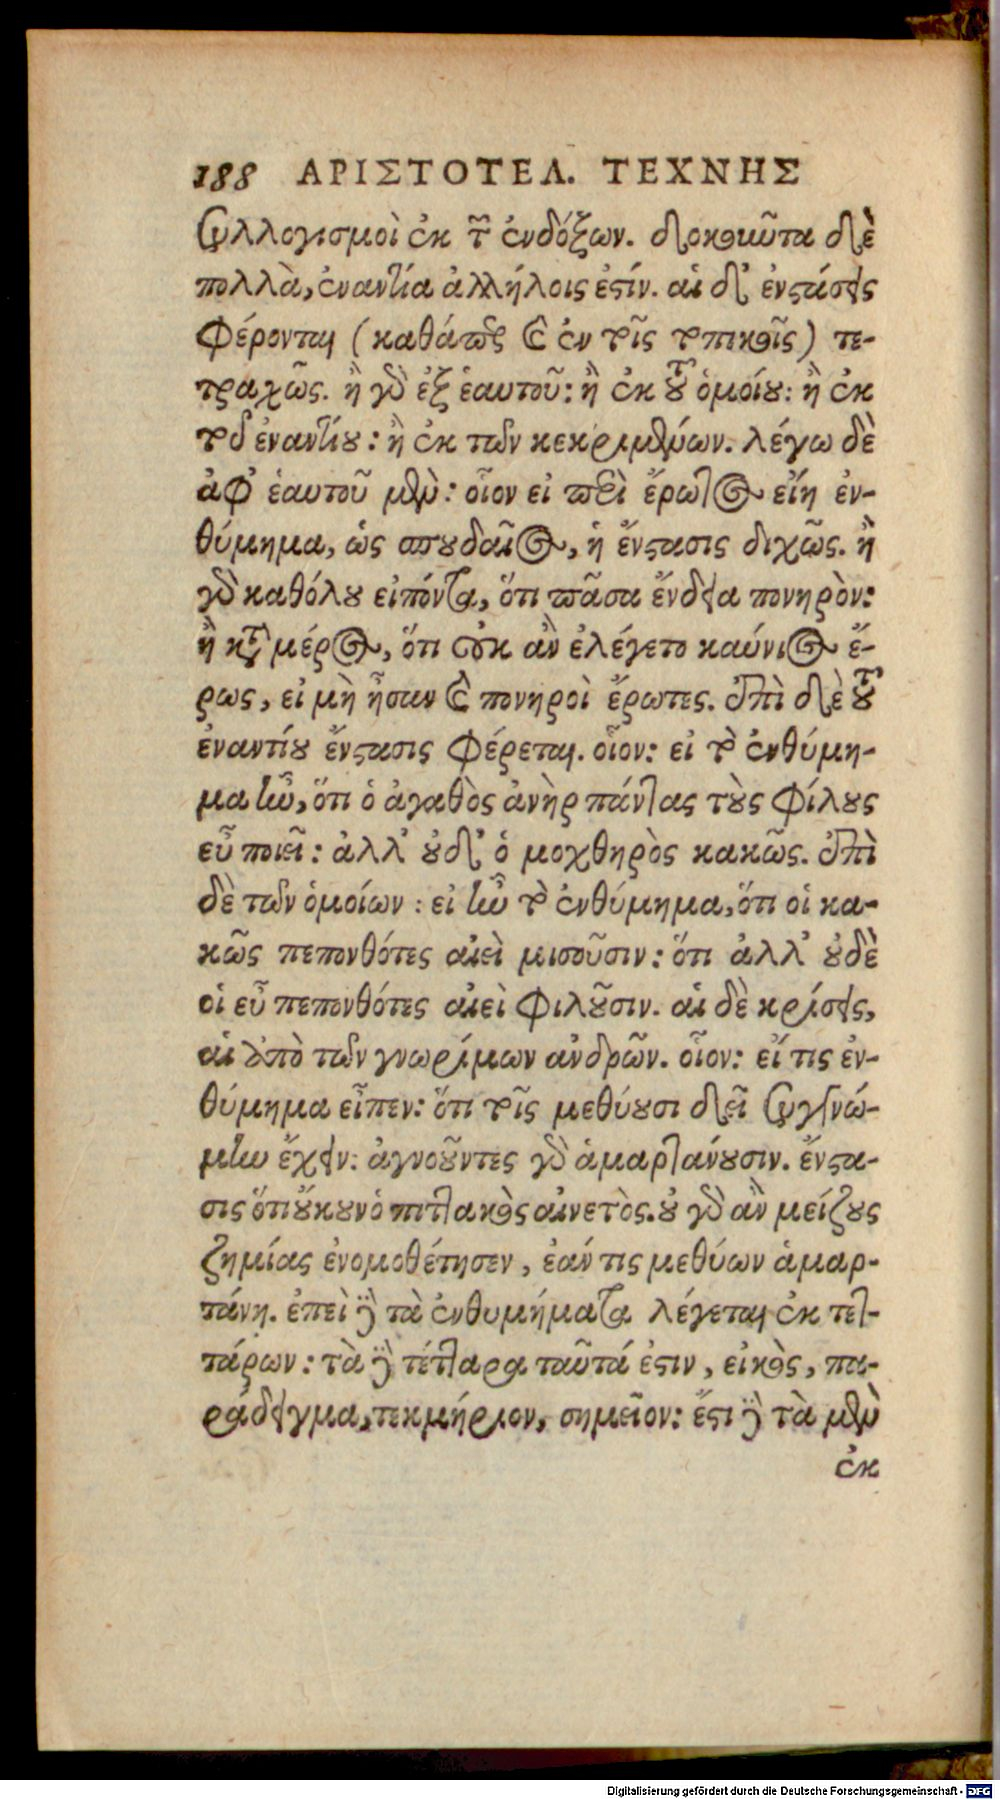 188 ΑΡΙΣΤΟΤΕΛ. ΤΕΧΝΗΣ
συλλογισμοὶ ἐκ τῶν ἐνδόξων. δοκοῦντα δὲ
πολλὰ, ἐναντία ἀλλήλοις ἐστίν. αἱ δ' ἐνστάσεις
φέρονται (καθάπερ καὶ ἐν τοῖς τοπικοῖς) τε-
τραχῶς. ἢ γὰρ ἐξ ἑαυτοῦ: ἢ ἐκ τοῦ ὁμοίου: ἢ ἐκ
τοῦ ἐναντίου: ἢ ἐκ τῶν κεκριμμένων. λέγω δὲ
ἀφ' ἑαυτοῦ μὲν: οἷον εἰ περὶ ἔρωτος εἴη ἐν-
θύμημα, ὡς σπουδαῖος, ἡ ἔνστασις διχῶς. ἢ
γὰρ καθόλου εἰπόντα, ὅτι πᾶσα ἔνδεια πονηρὸν:
ἢ κατὰ μέρος, ὅτι οὐκ ἂν ἐλέγετο καύνιος ἔ-
ρως, εἰ μὴ ἦσαν καὶ πονηροὶ ἔρωτες. ἐπὶ δὲ τοῦ
ἐναντίου ἔνστασις φέρεται. οἷον: εἰ τὸ ἐνθύμη-
μα ἦν, ὅτι ὁ ἀγαθὸς ἀνὴρ πάντας τοὺς φίλους
εὖ ποιεῖ: ἀλλ' οὐδ' ὁ μοχθηρὸς κακῶς. ἐπὶ
δὲ τῶν ὁμοίων: εἰ ἦν τὸ ἐνθύμημα, ὅτι οἱ κα-
κῶς πεπονθότες αἰεὶ μισοῦσιν: ὅτι ἀλλ' οὐδὲ
οἱ εὖ πεπονθότες αἰεὶ φιλοῦσιν. αἱ δὲ κρίσεις,
αἱ ἀπὸ τῶν γνωρίμων ἀνδρῶν. οἷον: εἴ τις ἐν-
θύμημα εἶπεν: ὅτι τοῖς μεθύουσι δεῖ συγγνώ-
μην ἔχειν: ἀγνοοῦντες γὰρ ἁμαρτάνουσιν. ἔνστα-
σις ὅτι οὔκουν ὁ πιττακὸς αἰνετὸς. οὐ γὰρ ἂν μείζους
ζημίας ἐνομοθέτησεν, ἐάν τις μεθύων ἁμαρ-
τάνη. ἐπεὶ δὲ τὰ ἐνθυμήματα λέγεται ἐκ τετ-
τάρων: τὰ δὲ τέτταρα ταῦτά ἐστιν, εἰκὸς, πα-
ράδειγμα, τεκμήριον, σημεῖον: ἔστι δὲ τὰ μὲν
ἐκ
Digitalisierung gefördert durch die Deutsche Forschungsgemeinschaft - DFG